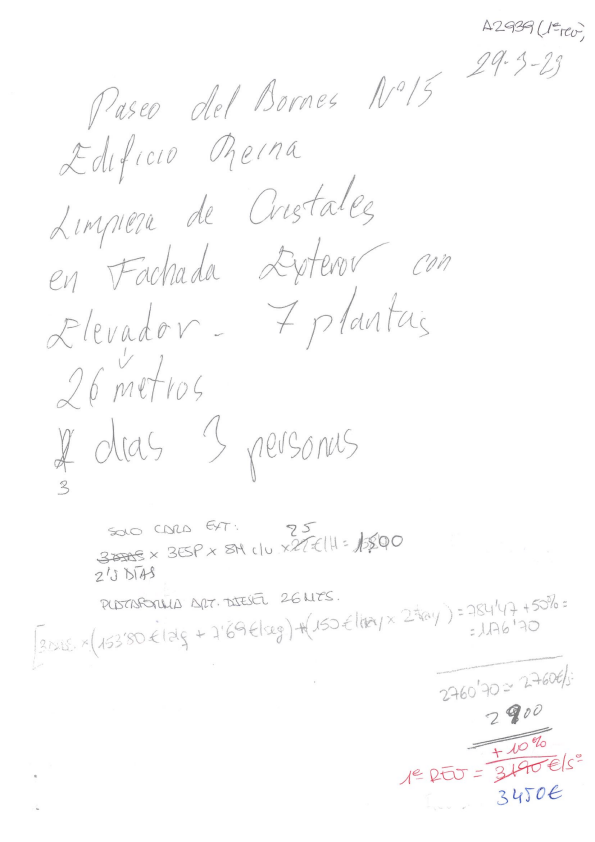 A2939 (1ª rev)
29-3-23
Paseo del Bornes Nº 15
Edificio Reina
Limpieza de Cristales
en Fachada Exterior con
Elevador - 7 plantas
26 metros
días 3 personas
3
SOLO CARA EXT:
25
3 DÍAS x 3ESP x 8H c/u x €/H = 1500
2'5 DÍAS
PLATAFORMA ART. DIESEL 26 MTS.
[3 x (153'80 €/alq + 7'69 €/seg) + (150 €/ x 2 )] = 784'47 + 50% =
= 1176'70
2760'70 ≈ 2760 €/s
2900
+ 10%
1ª REV = 3190 €/s
3450 €